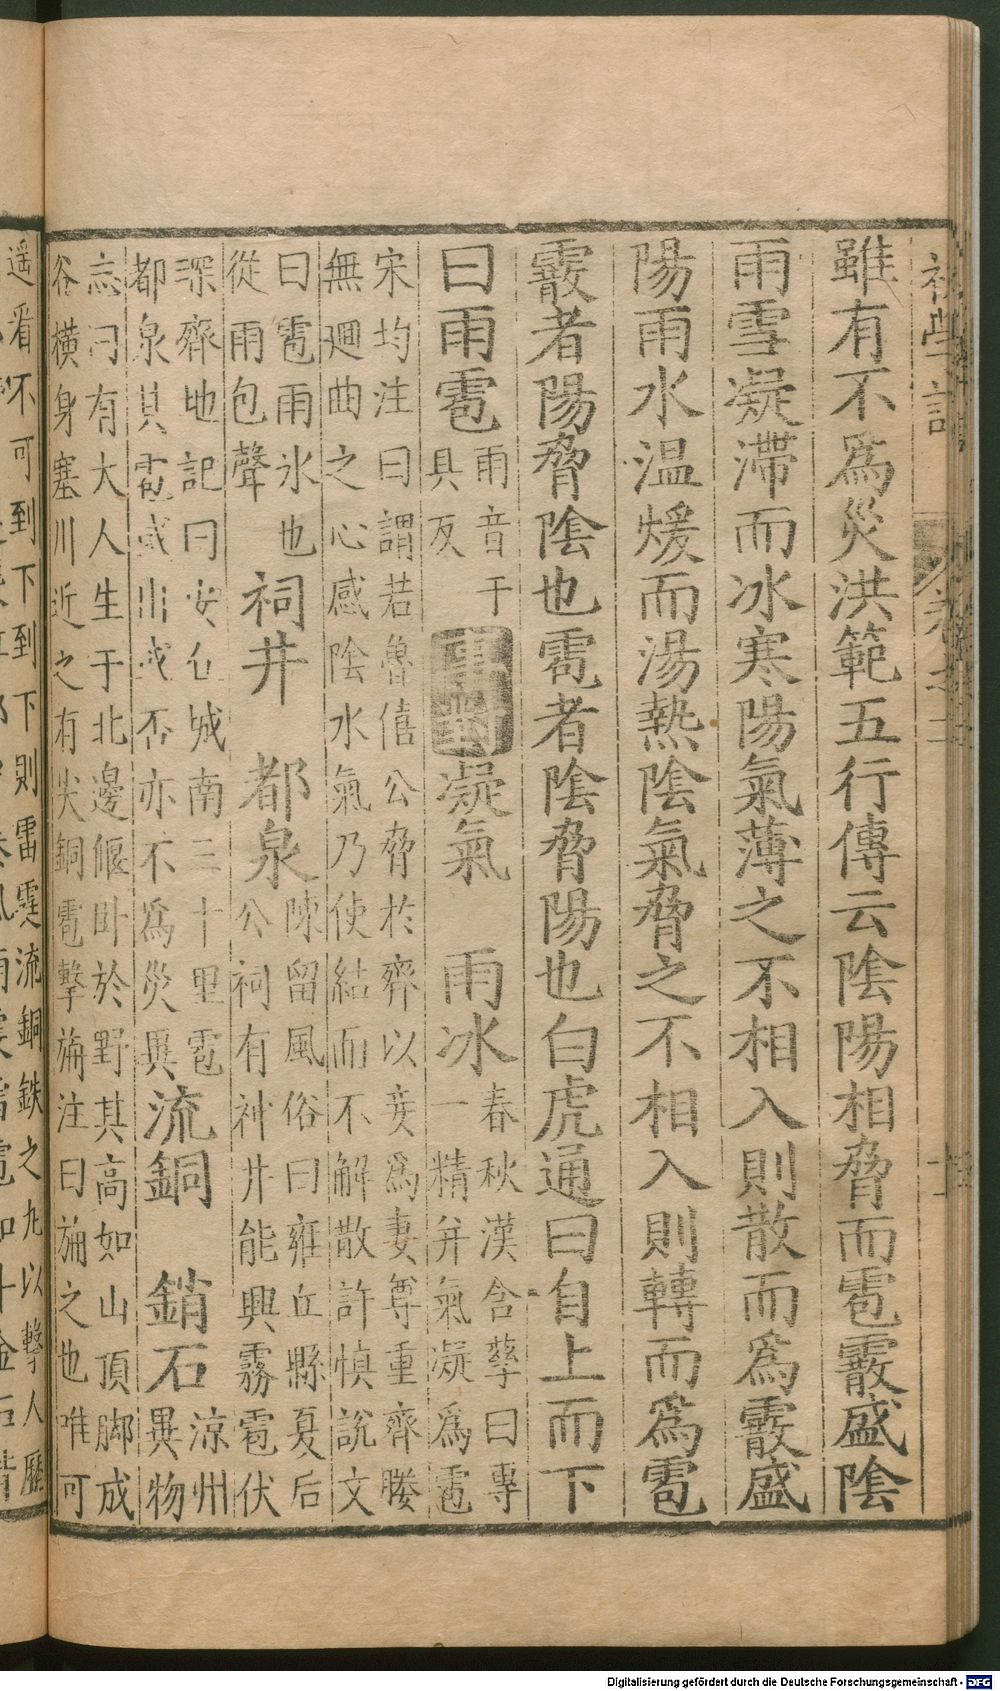 初學記 卷之二
雖有不爲災洪範五行傳云陰陽相脅而雹霰盛陰
雨雪凝滯而冰寒陽氣薄之不相入則散而爲霰盛
陽雨水温煖而湯熱陰氣脅之不相入則轉而爲雹
霰者陽脅陰也雹者陰脅陽也白虎通曰自上而下
曰雨雹
雨音于
具反
事對
凝氣 雨冰
春秋漢含孳曰專
一精并氣凝爲雹
宋均注曰謂若魯僖公脅於齊以妾爲妻尊重齊媵
無迴曲之心感陰水氣乃使結而不解散許慎說文
曰雹雨氷也
從雨包聲
祠井 都泉
陳留風俗曰雍丘縣夏后
公祠有神井能興霧雹伏
深齊地記曰安丘城南三十里雹
都泉其雹或出或否亦不爲災異
流銅 銷石
涼州
異物
志曰有大人生于北邊偃卧於野其高如山頂脚成
谷橫身塞川近之有災銅雹擊旃注曰旃之也唯可
遥看不可到下到下則雷霆流銅鉄之丸以擊人歷
Digitalisierung gefördert durch die Deutsche Forschungsgemeinschaft - DFG